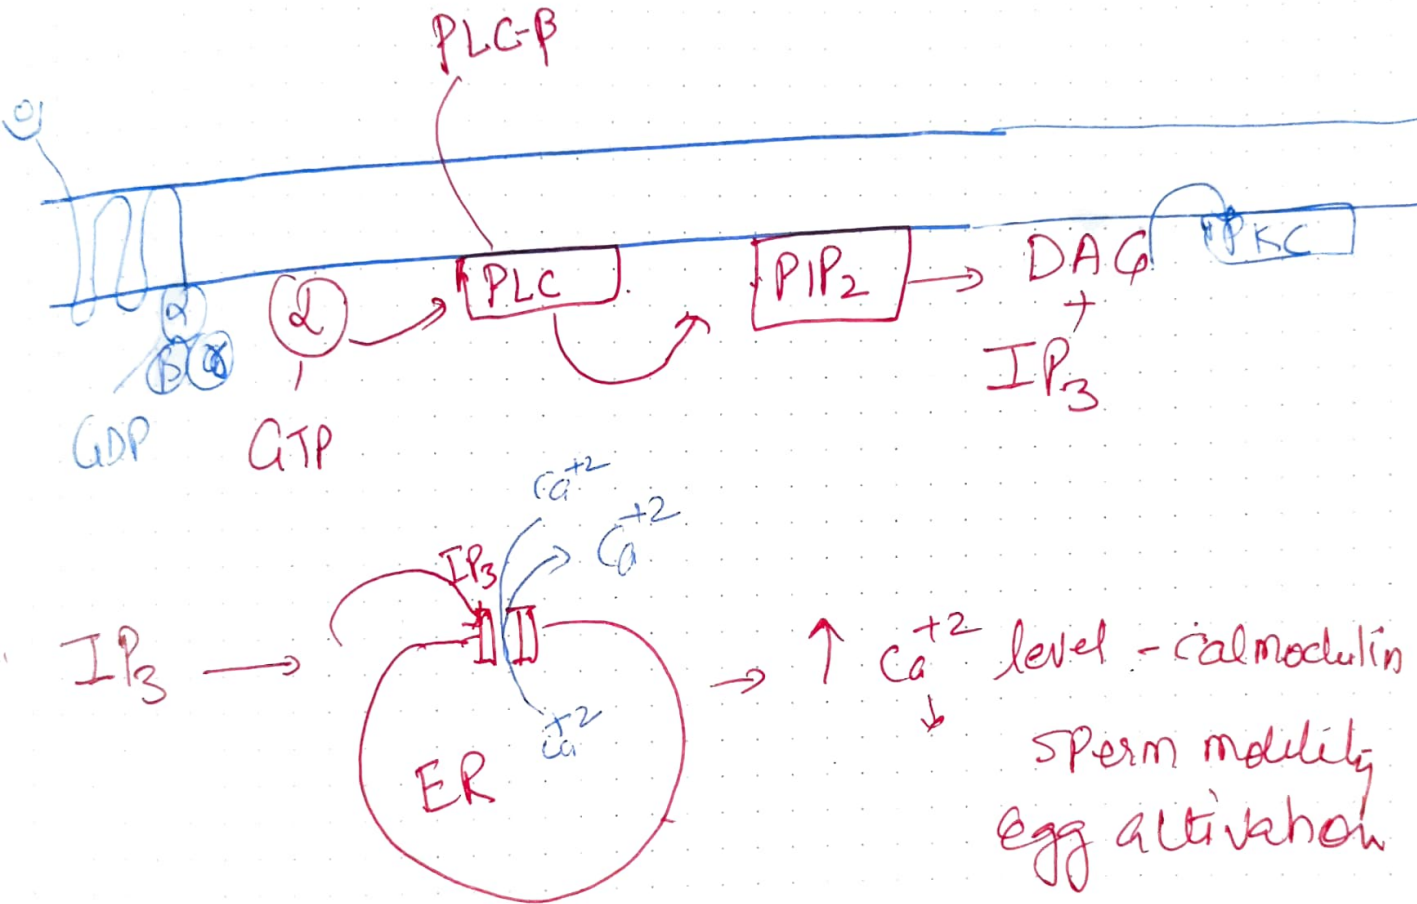 PLC-β
PLC
PIP2
DAG
PKC
+
IP3
α
α
β
GDP
GTP
Ca+2
Ca+2
IP3
IP3
ER
Ca+2
↑ Ca+2 level - calmodulin
sperm motility
egg activation